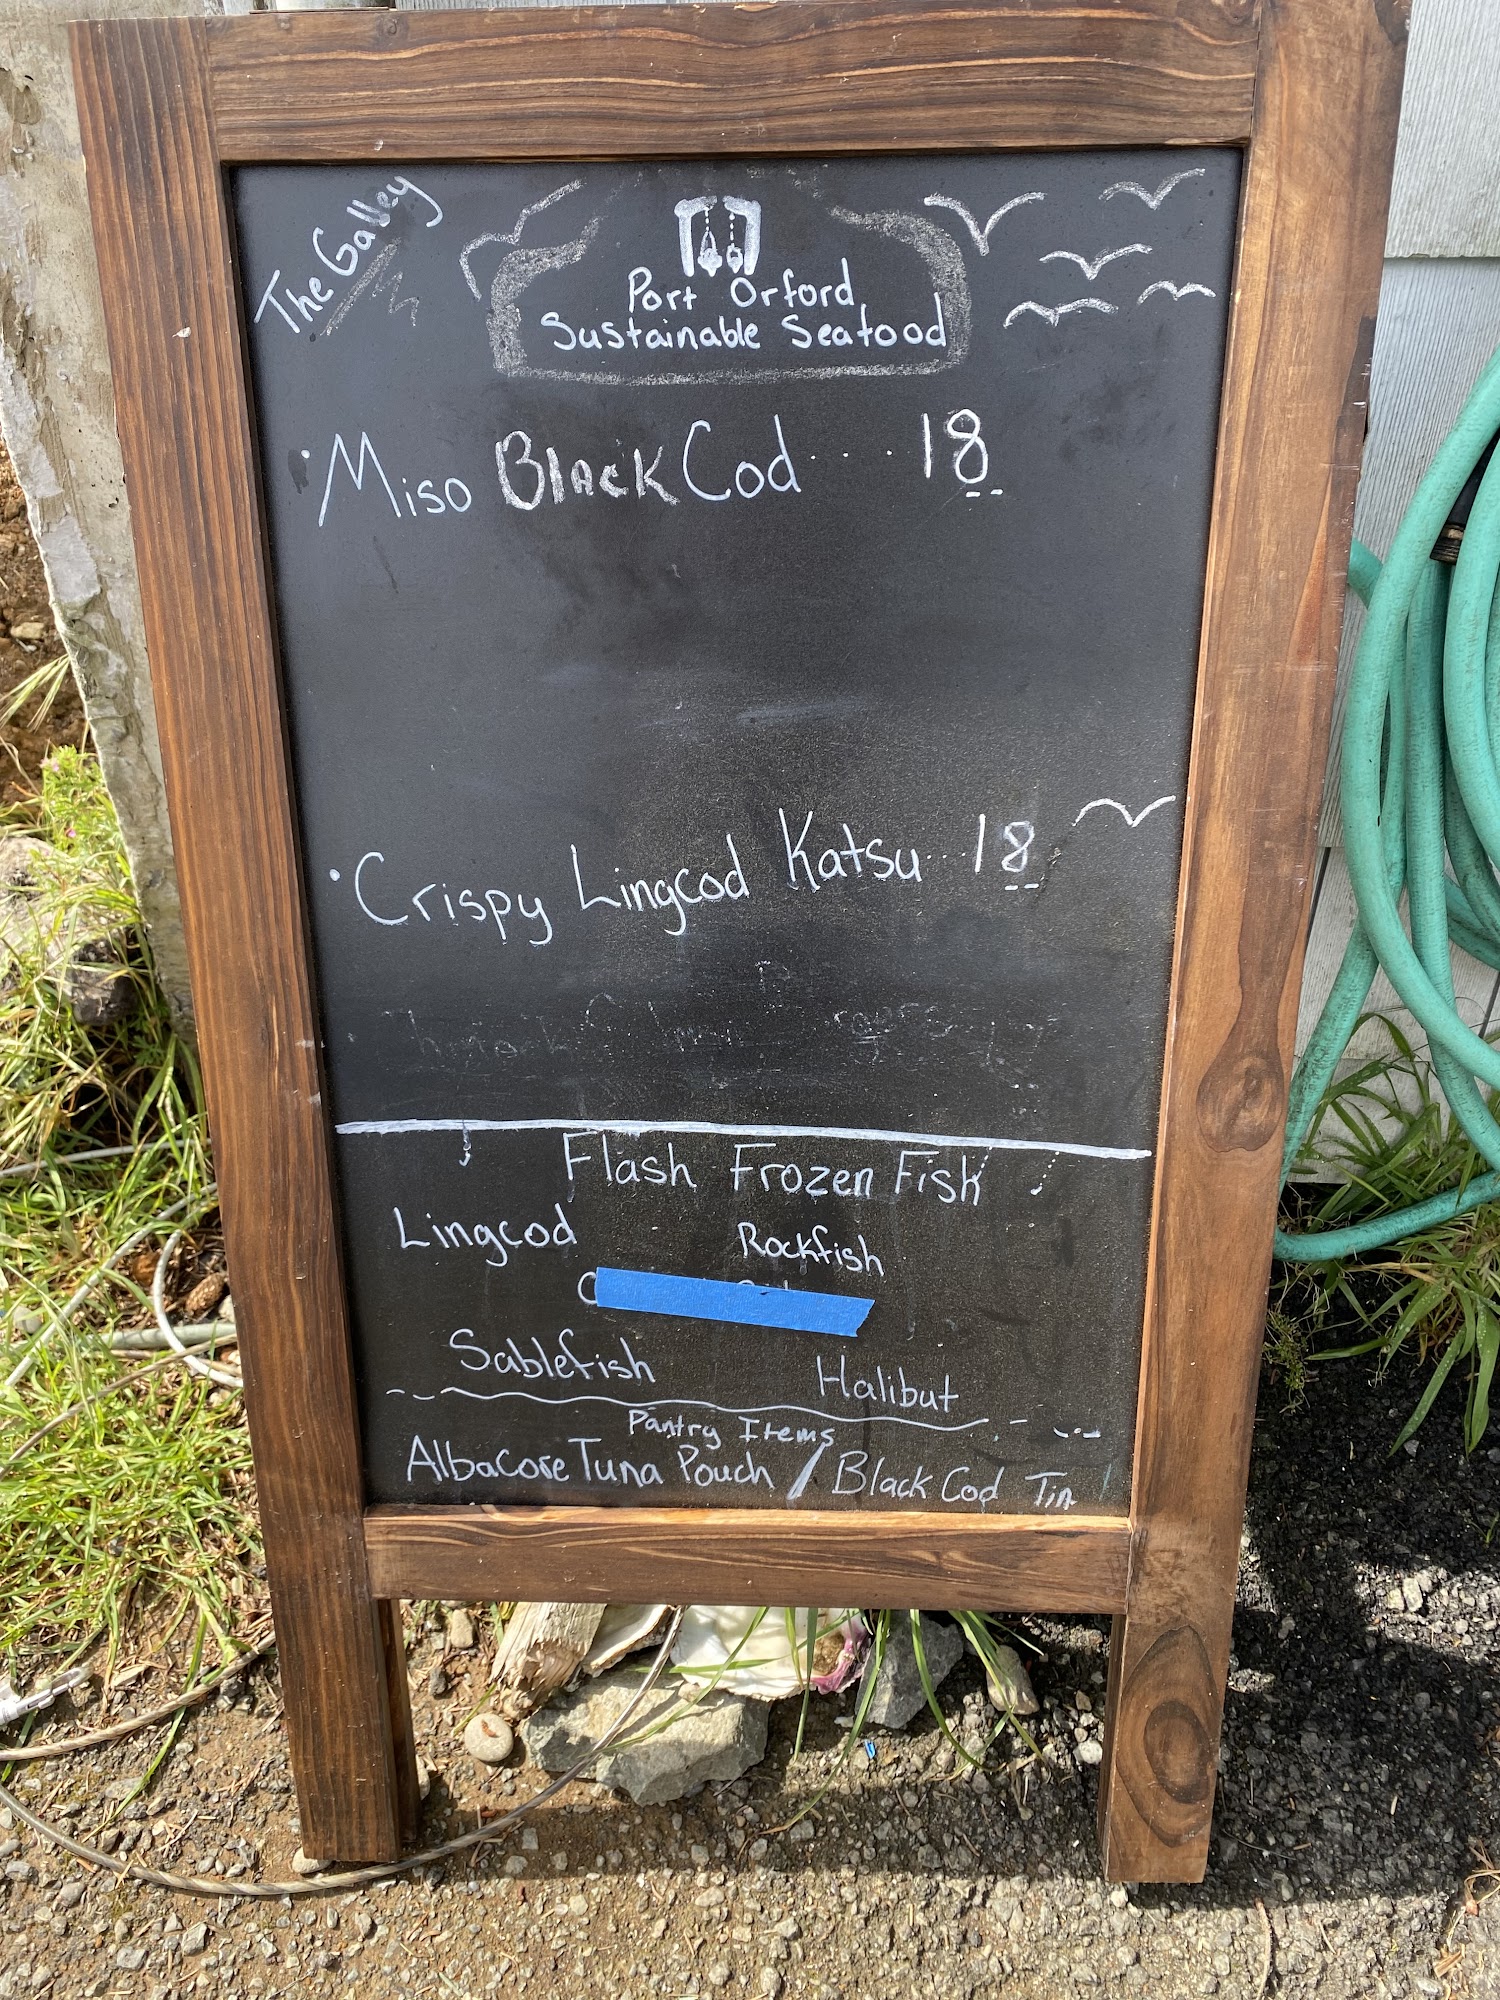 The Galley
Port Orford
Sustainable Seafood
· Miso Black Cod .... 18
· Crispy Lingcod Katsu ... 18
Flash Frozen Fish
Lingcod Rockfish
Sablefish Halibut
Pantry Items
Albacore Tuna Pouch / Black Cod Tin